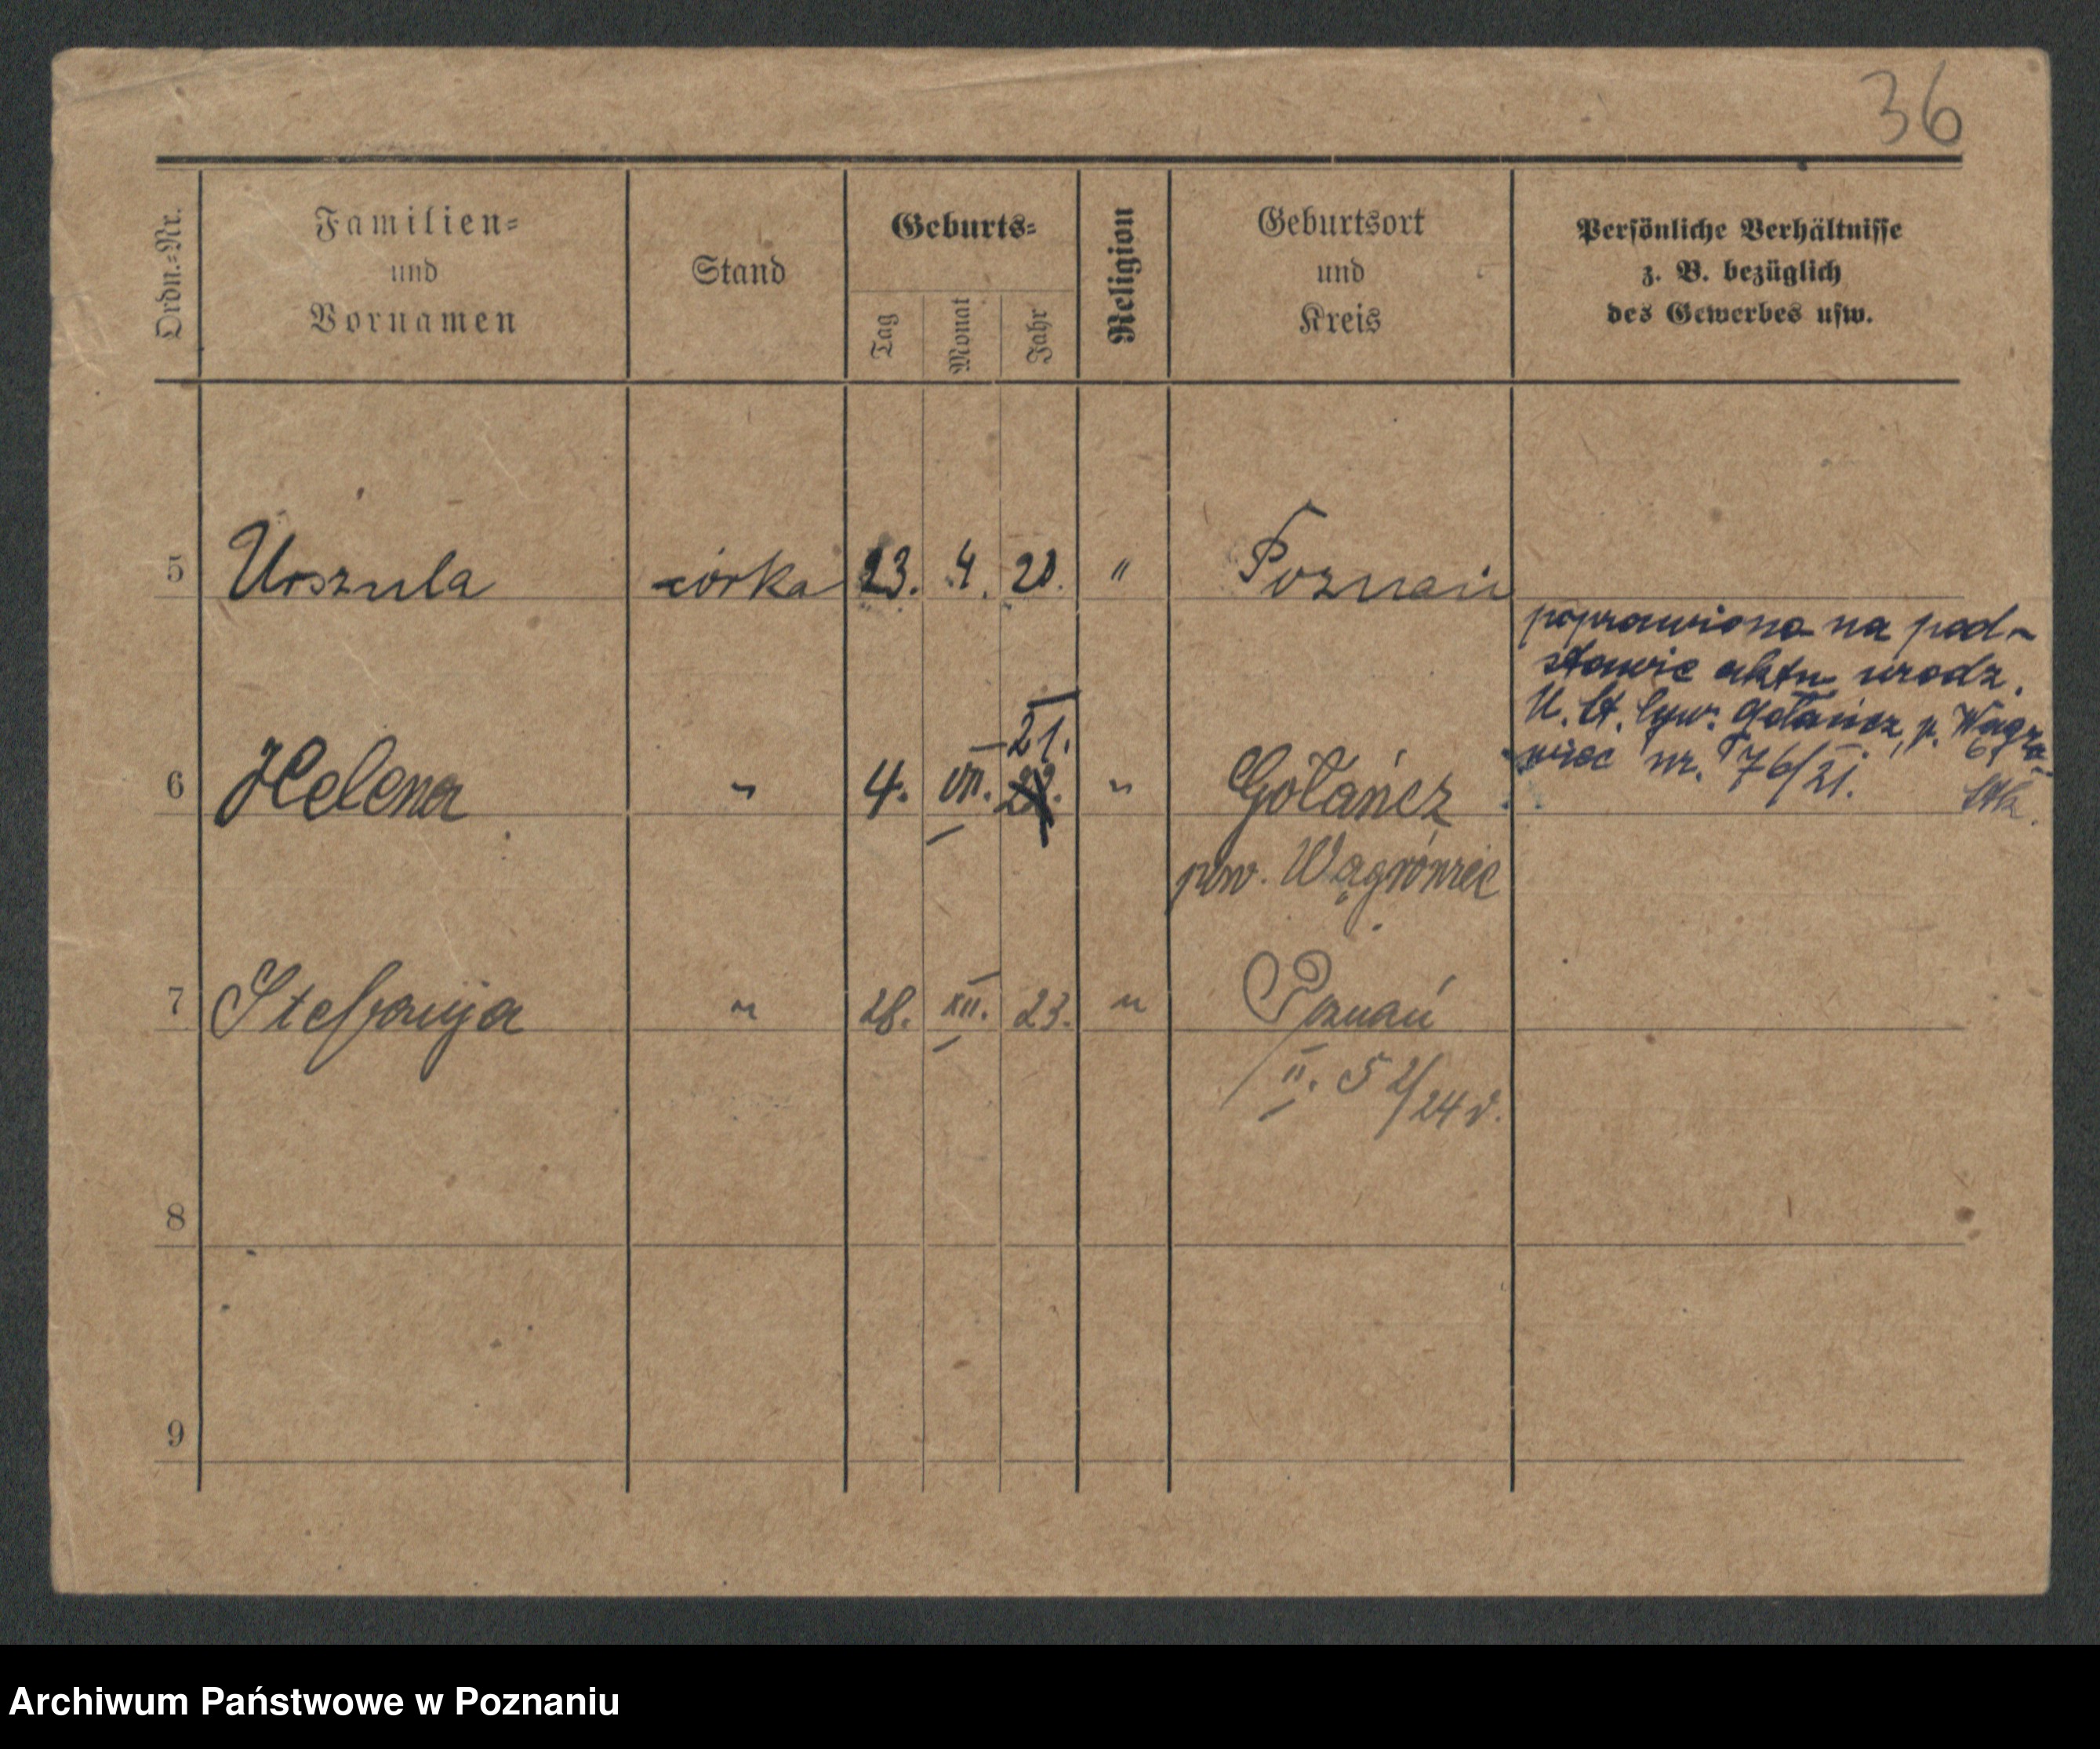 36
Ordn.-Nr.
Familien-
und
Vornamen
Stand
Geburts-
Tag
Monat
Jahr
Religion
Geburtsort
und
Kreis
Persönliche Verhältnisse
z. B. bezüglich
des Gewerbes usw.
5 Urszula córka 23. 4. 20. " Poznań
poprawiono na pod-
stawie aktu urodz.
U. St. Cyw. Gołańcz, p. Wągro-
wiec nr. 76/21.
21.
6 Helena " 4. VII. 22. " Gołańcz
pow. Wągrówiec
7 Stefanja " 28. XII. 23. " Poznań
II. 52/24 r.
8
9
Archiwum Państwowe w Poznaniu